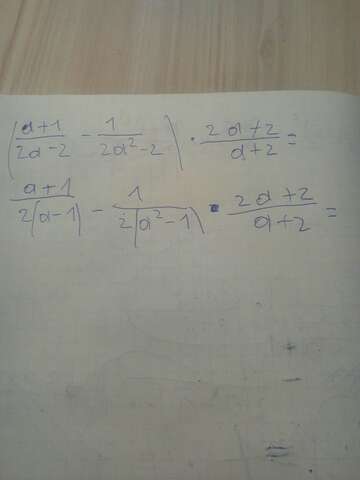 (a+1/2a-2 - 1/2a²-2) · 2a+2/a+2 =
a+1/2(a-1) - 1/2(a²-1) · 2a+2/a+2 =
+
-
=